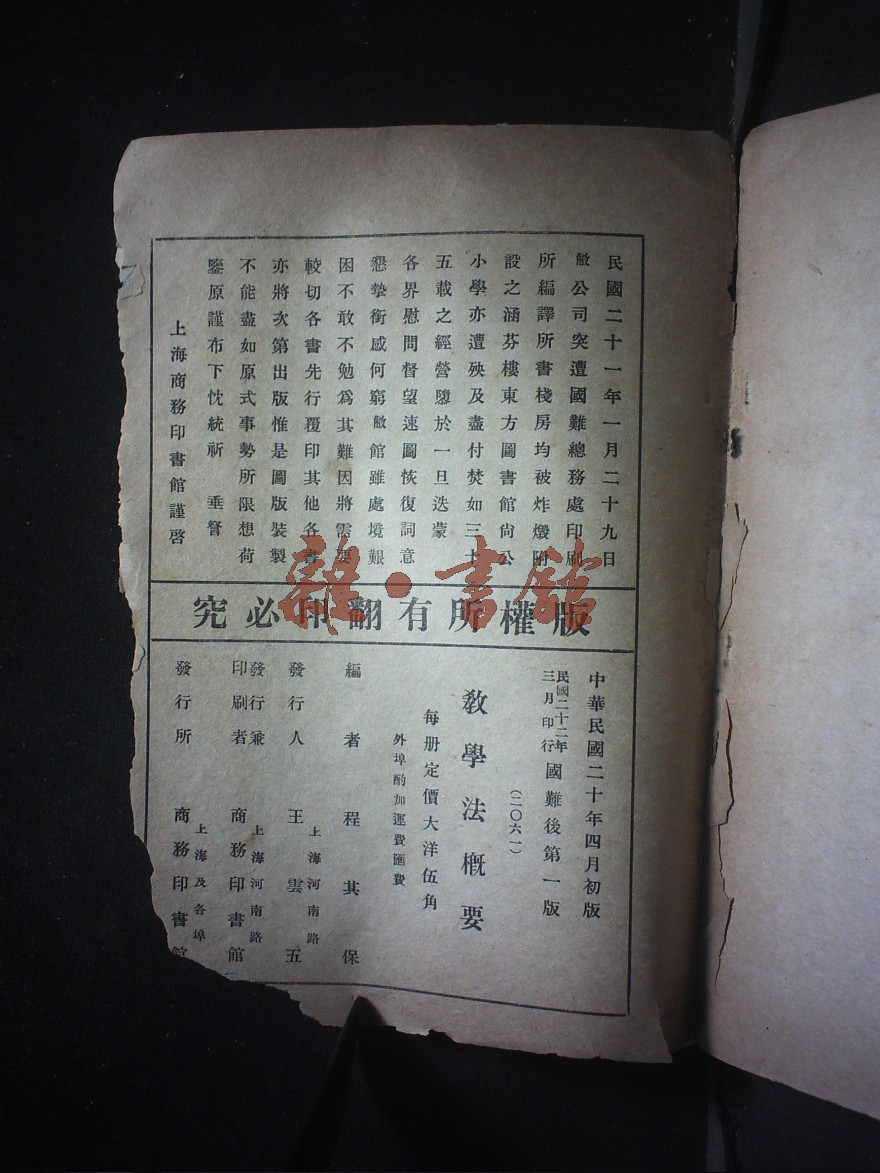 民國二十一年一月二十九日
敝公司突遭國難總務處印刷
所編譯所書棧房均被炸燬附
設之涵芬樓東方圖書館尚公
小學亦遭殃及盡付焚如三十
五載之經營隳於一旦迭蒙
各界慰問督望速圖恢復詞意
懇摯銜感何窮敝館雖處境艱
困不敢不勉爲其難因將需要
較切各書先行覆印其他各書
亦將次第出版惟是圖版裝製
不能盡如原式事勢所限想荷
鑒原謹布下忱統祈 垂詧
上海商務印書館謹啓
版權所有翻印必究
中華民國二十年四月初版
民國二十二年三月印行 國難後第一版
(二〇六一)
教學法概要
每册定價大洋伍角
外埠酌加運費匯費
編者 程其保
上海河南路
發行人 王雲五
上海河南路
發行兼印刷者 商務印書館
上海及各埠
發行所 商務印書館
雜·書館